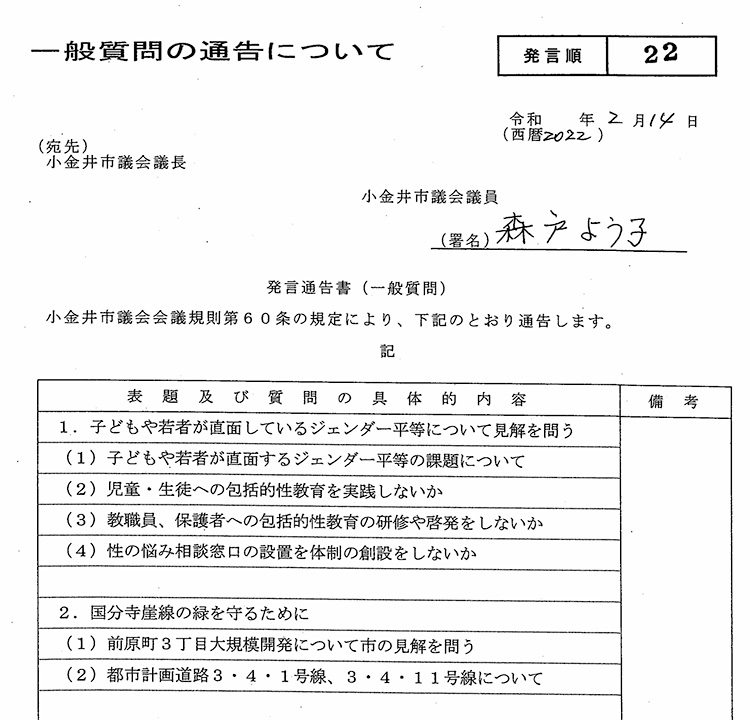 一般質問の通告について
発言順 22
令和 年2月14日
(西暦2022)
(宛先)
小金井市議会議長
小金井市議会議員
(署名) 森戸よう子
発言通告書(一般質問)
小金井市議会会議規則第60条の規定により、下記のとおり通告します。
記
表題及び質問の具体的内容 備考
1.子どもや若者が直面しているジェンダー平等について見解を問う
(1)子どもや若者が直面するジェンダー平等の課題について
(2)児童・生徒への包括的性教育を実践しないか
(3)教職員、保護者への包括的性教育の研修や啓発をしないか
(4)性の悩み相談窓口の設置を体制の創設をしないか
2.国分寺崖線の緑を守るために
(1)前原町3丁目大規模開発について市の見解を問う
(2)都市計画道路3・4・1号線、3・4・11号線について